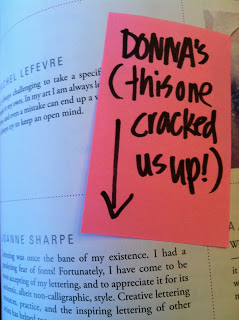 HEL LEFEVRE
challenging to take a specif
my own. In my art I am always l
and even a mistake can end up a
try to keep an open mind.
DONNA's
(this one
cracked
us up!)
ANNE SHARPE
was once the bane of my existence. I had a
fear of fonts! Fortunately, I have come to be
accepting of my lettering, and to appreciate it for its
albeit non-calligraphic, style. Creative lettering
practice, and the inspiring lettering of other
A.
W
it